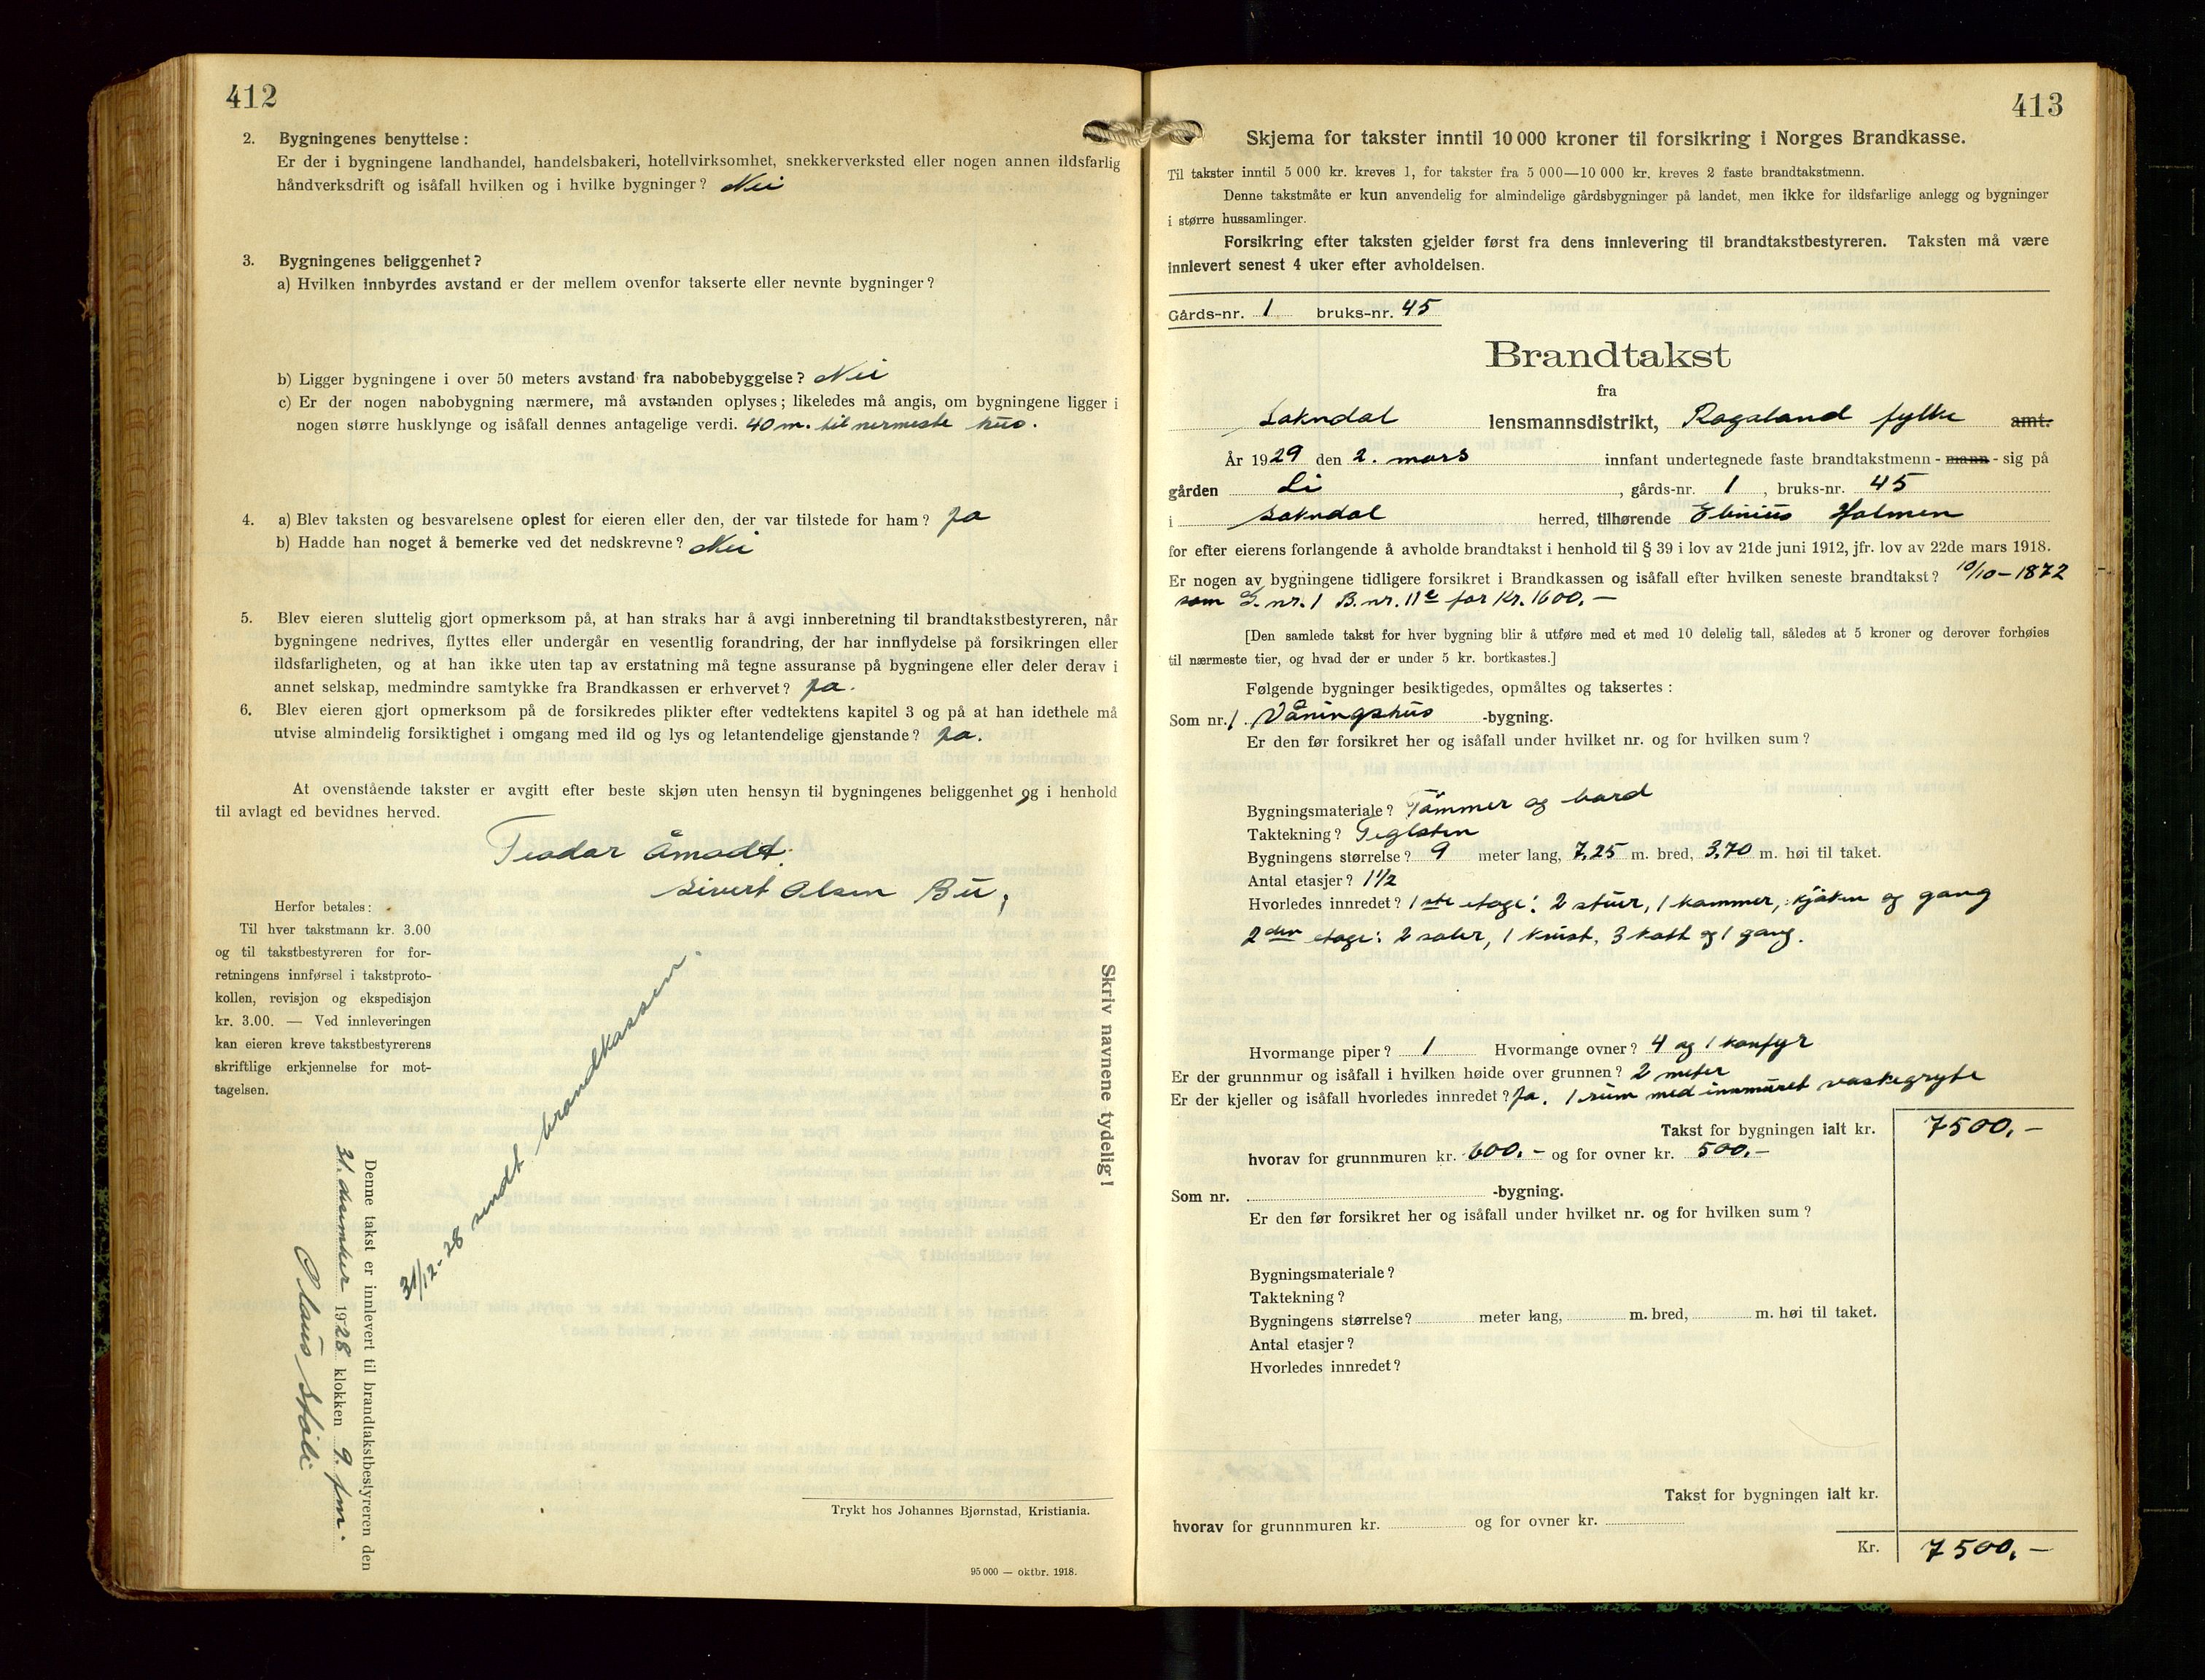 412
2. Bygningenes benyttelse:
Er der i bygningene landhandel, handelsbakeri, hotellvirksomhet, snekkerverksted eller nogen annen ildsfarlig
håndverksdrift og isåfall hvilken og i hvilke bygninger? Nei
3. Bygningenes beliggenhet?
a) Hvilken innbyrdes avstand er der mellem ovenfor takserte eller nevnte bygninger?
b) Ligger bygningene i over 50 meters avstand fra nabobebyggelse? Nei
c) Er der nogen nabobygning nærmere, må avstanden oplyses; likeledes må angis, om bygningene ligger i
nogen større husklynge og isåfall dennes antagelige verdi. 40 m. til nermeste hus.
4. a) Blev taksten og besvarelsene oplest for eieren eller den, der var tilstede for ham? Ja
b) Hadde han noget å bemerke ved det nedskrevne? Nei
5. Blev eieren sluttelig gjort opmerksom på, at han straks har å avgi innberetning til brandtakstbestyreren, når
bygningene nedrives, flyttes eller undergår en vesentlig forandring, der har innflydelse på forsikringen eller
ildsfarligheten, og at han ikke uten tap av erstatning må tegne assuranse på bygningene eller deler derav i
annet selskap, medmindre samtykke fra Brandkassen er erhvervet? Ja.
6. Blev eieren gjort opmerksom på de forsikredes plikter efter vedtektens kapitel 3 og på at han idethele må
utvise almindelig forsiktighet i omgang med ild og lys og letantendelige gjenstande? Ja.
At ovenstående takster er avgitt efter beste skjøn uten hensyn til bygningenes beliggenhet og i henhold
til avlagt ed bevidnes herved.
Teodor Åmodt.
Sivert Olsen Bu,
Herfor betales:
Til hver takstmann kr. 3.00
og til takstbestyreren for for-
retningens innførsel i takstproto-
kollen, revisjon og ekspedisjon
kr. 3.00. — Ved innleveringen
kan eieren kreve takstbestyrerens
skriftlige erkjennelse for mot-
tagelsen.
Skriv navnene tydelig!
31/12-28 sendt brandkassen.
Denne takst er innlevert til brandtakstbestyreren den
31. desember 1928 klokken 9. fm.
Olaus Stôle
Trykt hos Johannes Bjørnstad, Kristiania.
95 000 — oktbr. 1918.
413
Skjema for takster inntil 10 000 kroner til forsikring i Norges Brandkasse.
Til takster inntil 5 000 kr. kreves 1, for takster fra 5 000—10 000 kr. kreves 2 faste brandtakstmenn.
Denne takstmåte er kun anvendelig for almindelige gårdsbygninger på landet, men ikke for ildsfarlige anlegg og bygninger
i større hussamlinger.
Forsikring efter taksten gjelder først fra dens innlevering til brandtakstbestyreren. Taksten må være
innlevert senest 4 uker efter avholdelsen.
Gårds-nr. 1 bruks-nr. 45
Brandtakst
fra
Sokndal lensmannsdistrikt, Rogaland fylke amt.
År 1929 den 2. mars innfant undertegnede faste brandtakstmenn - mann - sig på
gården Li, gårds-nr. 1, bruks-nr. 45
i Sokndal herred, tilhørende Elinius Holmen
for efter eierens forlangende å avholde brandtakst i henhold til § 39 i lov av 21de juni 1912, jfr. lov av 22de mars 1918.
Er nogen av bygningene tidligere forsikret i Brandkassen og isåfall efter hvilken seneste brandtakst? 10/10-1872
som G.nr. 1 B.nr. 11e for Kr. 1600.—
[Den samlede takst for hver bygning blir å utføre med et med 10 delelig tall, således at 5 kroner og derover forhøies
til nærmeste tier, og hvad der er under 5 kr. bortkastes.]
Følgende bygninger besiktigedes, opmåltes og taksertes:
Som nr. 1 Våningshus -bygning.
Er den før forsikret her og isåfall under hvilket nr. og for hvilken sum?
Bygningsmateriale? Tömmer og bord
Taktekning? Teglsten
Bygningens størrelse? 9 meter lang, 7,25 m. bred, 3,70 m. høi til taket.
Antal etasjer? 1 1/2
Hvorledes innredet? 1ste etage: 2 stuer, 1 kammer, kjöken og gang
2den etage: 2 saler, 1 kvist, 3 kott og 1 gang.
Hvormange piper? 1 Hvormange ovner? 4 og 1 komfyr
Er der grunnmur og isåfall i hvilken høide over grunnen? 2 meter
Er der kjeller og isåfall hvorledes innredet? Ja. 1 rum med innmuret vaskegryte
Takst for bygningen ialt kr. 7500,—
hvorav for grunnmuren kr. 600.— og for ovner kr. 500,—
Som nr. -bygning.
Er den før forsikret her og isåfall under hvilket nr. og for hvilken sum?
Bygningsmateriale?
Taktekning?
Bygningens størrelse? meter lang, m. bred, m. høi til taket.
Antal etasjer?
Hvorledes innredet?
Takst for bygningen ialt kr.
hvorav for grunnmuren kr. og for ovner kr.
Kr. 7500,—